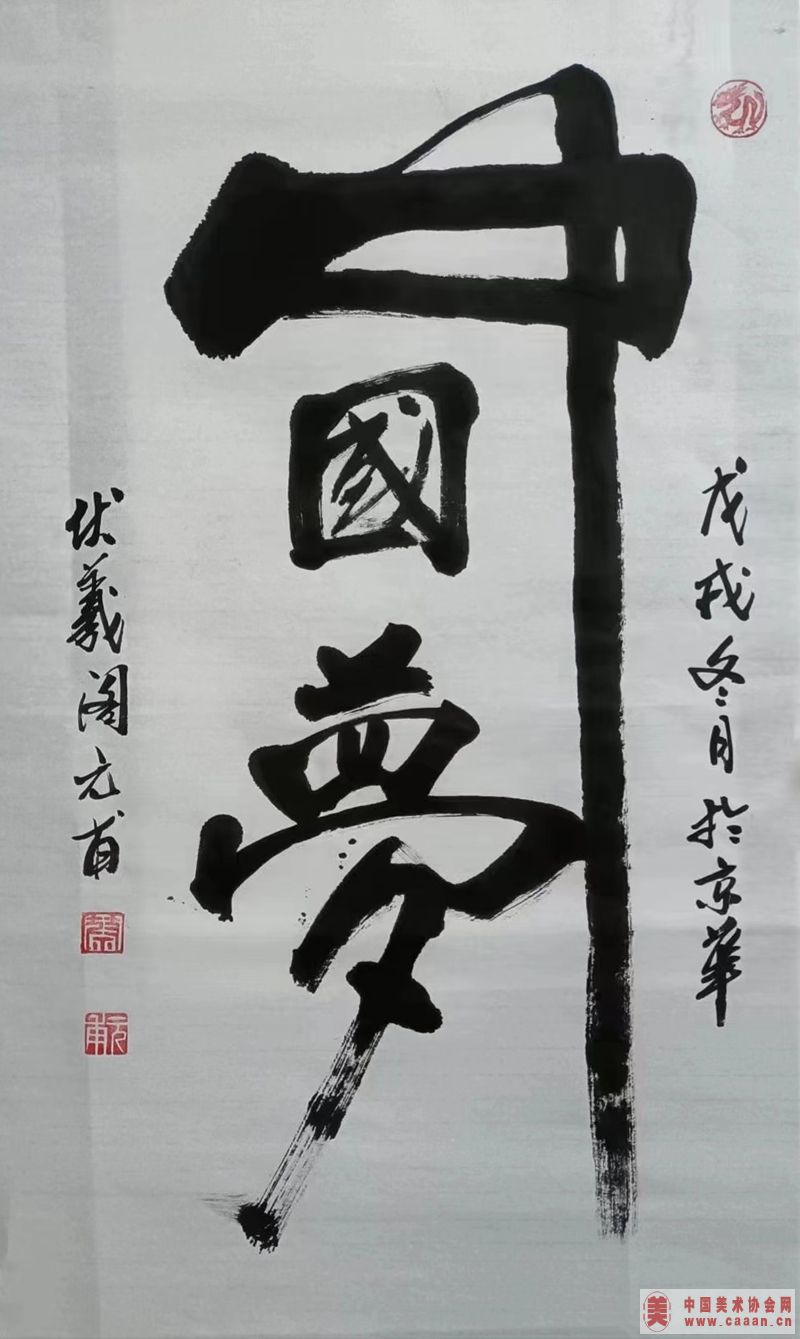 中國夢
戊戌冬月於京華
伏羲阁元甫
元甫
美
中国美术协会网
www.caaan.cn